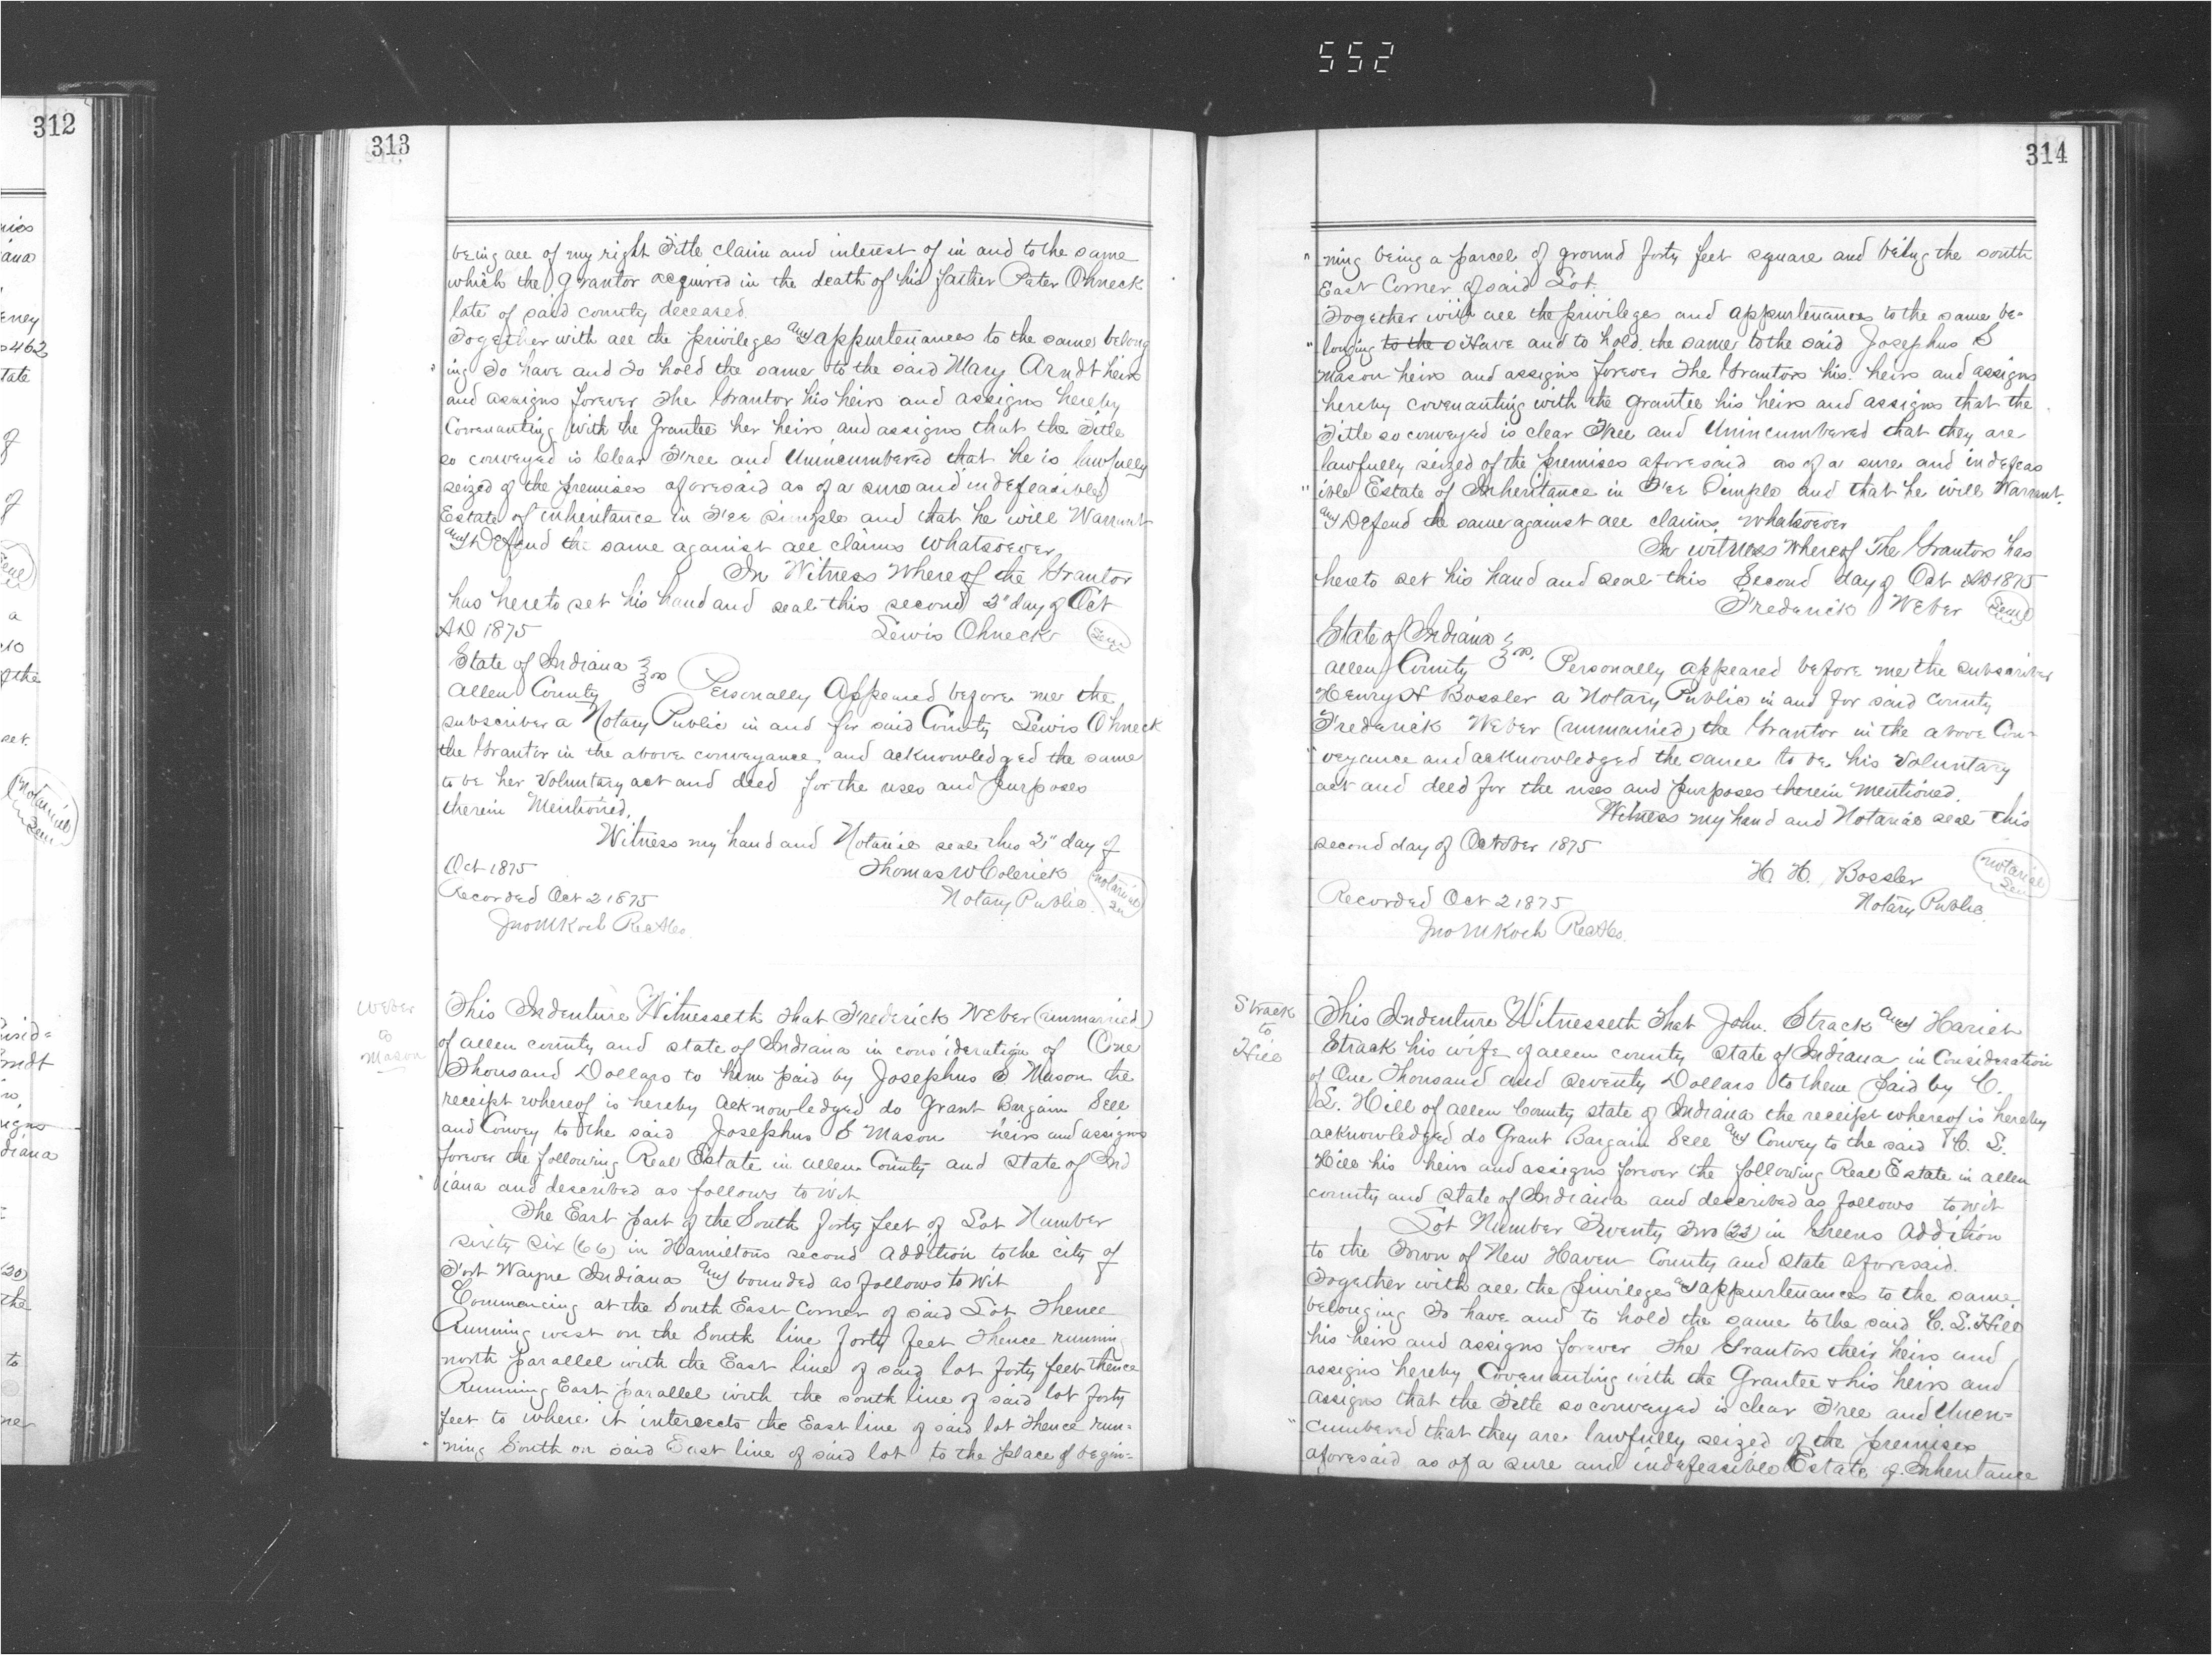 552
312
313
being all of my right Title claim and interest of in and to the same
which the Grantor acquired in the death of his father Peter Ohneck
late of said county deceased.
Together with all the privileges and appurtenances to the same belong
ing To have and To hold the same to the said Mary Arndt heirs
and assigns forever The Grantor his heirs and assigns hereby
Covenanting with the Grantee her heirs and assigns that the Title
so conveyed is Clear Free and Unincumbered that he is lawfully
seized of the premises aforesaid as of a sure and indefeasible
Estate of inheritance in Fee simple and that he will Warrant
and Defend the same against all claims whatsoever
In Witness Whereof the Grantor
has hereto set his hand and seal this second 2" day of Oct
AD 1875 Lewis Ohneck Seal
State of Indiana
Allen County ss Personally Appeared before me the
subscriber a Notary Public in and for said County Lewis Ohneck
the Grantor in the above conveyance and acknowledged the same
to be her Voluntary act and deed for the uses and purposes
therein Mentioned.
Witness my hand and Notarial seal this 2" day of
Oct 1875 Thomas W Colerick Notarial Seal
Recorded Oct 2 1875 Notary Public.
Jno M Koch Rec
Weber
to
Mason
This Indenture Witnesseth That Frederick Weber (unmarried)
of allen county and state of Indiana in consideration of One
Thousand Dollars to him paid by Josephus S Mason the
receipt whereof is hereby acknowledged do Grant Bargain Sell
and Convey to the said Josephus S Mason heirs and assigns
forever the following Real Estate in allen County and State of Ind
iana and described as follows to wit
The East part of the South forty feet of Lot Number
sixty six (66) in Hamiltons second Addition to the city of
Fort Wayne Indiana and bounded as follows to wit
Commencing at the South East Corner of said Lot Thence
Running west on the South line forty feet Thence running
north parallel with the East line of said lot forty feet thence
Running East parallel with the south line of said lot forty
feet to where it intersects the East line of said lot Thence run=
ning South on said East line of said lot to the place of begin=
314
" ning being a parcel of ground forty feet square and being the south
East Corner of said Lot.
Together with all the privileges and appurtenances to the same be=
" longing to the s Have and to hold the same to the said Josephus S
Mason heirs and assigns forever The Grantors his heirs and assigns
hereby covenanting with the grantee his heirs and assigns that the
Title so conveyed is clear Free and Unincumbered that they are
lawfully seized of the premises aforesaid as of a sure and indefeas
" ible Estate of Inheritance in Fee Simple and that he will Warrant
and Defend the same against all claims whatsoever
In witness Whereof The Grantors has
hereto set his hand and seal this Second day of Oct AD 1875
Frederick Weber Seal
State of Indiana
Allen County ss. Personally appeared before me the subscriber
Henry H Bossler a Notary Public in and for said County
Frederick Weber (unmarried) the Grantor in the above Con=
" veyance and acknowledged the same to be his Voluntary
act and deed for the uses and purposes therein mentioned.
Witness my hand and Notarial seal this
second day of October 1875
H. H. Bossler Notarial Seal
Recorded Oct 2 1875 Notary Public
Jno M Koch Rec
Strack
to
Hill
This Indenture Witnesseth That John Strack and Hariet
Strack his wife of allen county State of Indiana in Consideration
of One Thousand and Seventy Dollars to them paid by C.
L. Hill of allen County state of Indiana the receipt whereof is hereby
acknowledged do Grant Bargain Sell and Convey to the said C. L.
Hill his heirs and assigns forever the following Real Estate in allen
county and State of Indiana and described as follows to wit
Lot Number Twenty Two (22) in Greens Addition
to the Town of New Haven County and State aforesaid.
Together with all the Privileges and appurtenances to the same
belonging To have and to hold the same to the said C. L. Hill
his heirs and assigns forever The Grantors their heirs and
assigns hereby Covenanting with the Grantee & his heirs and
assigns that the Title so conveyed is clear Free and Unen=
" cumbered that they are lawfully seized of the premises
aforesaid as of a sure and indefeasible Estate of Inheritance